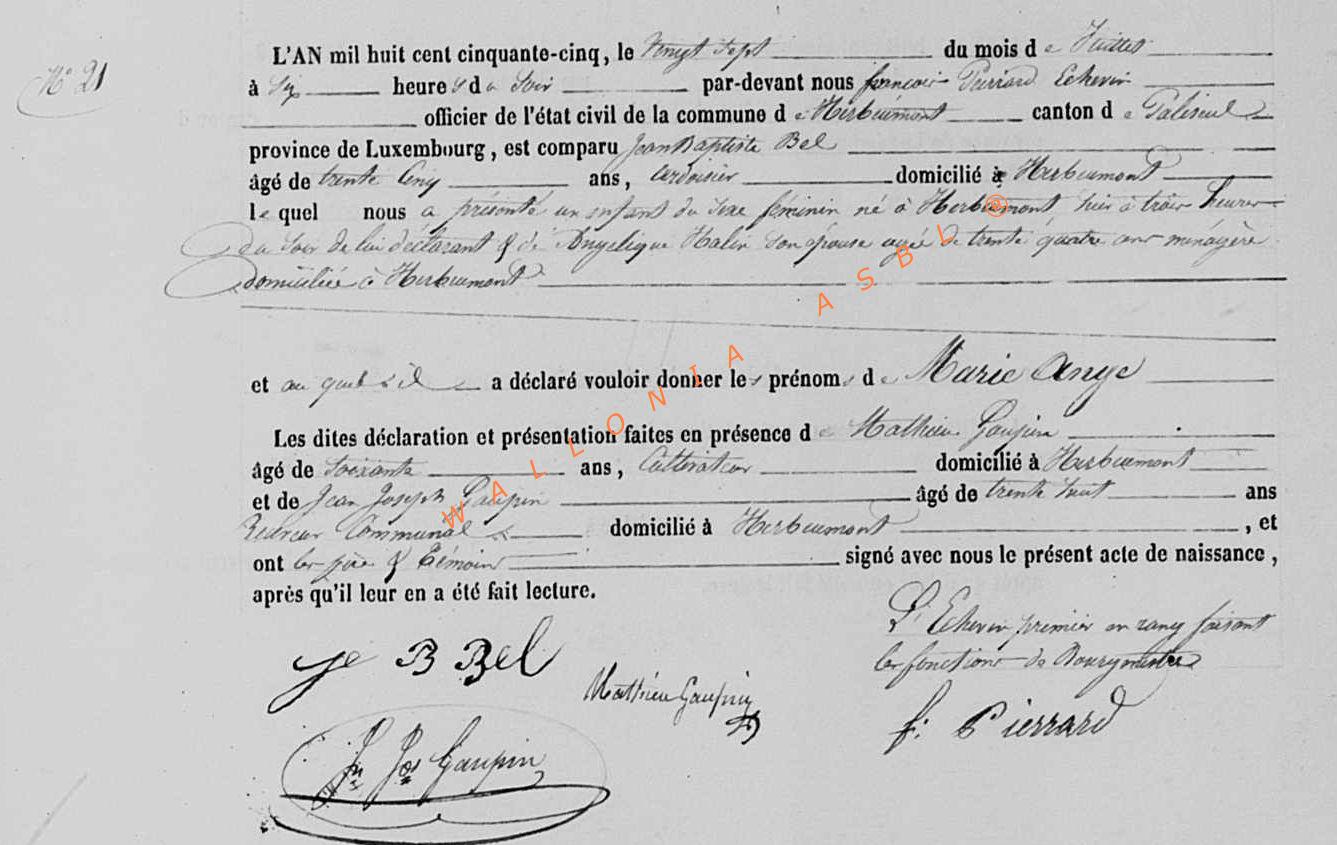 N° 21
L'AN mil huit cent cinquante-cinq, le Vingt Sept du mois de Juillet
à Six heures du Soir par-devant nous françois Pierrard Echevin
officier de l'état civil de la commune de Herbeumont canton de Paliseul
province de Luxembourg, est comparu Jean Baptiste Bel
âgé de trente Cinq ans, ardoisier domicilié à Herbeumont
lequel nous a présenté un enfant du sexe féminin né à Herbeumont hier à trois heures
du soir de lui déclarant & de Angelique Halin son épouse agée de trente quatre ans ménagère
domiciliée à Herbeumont
et auquel il a déclaré vouloir donner les prénoms de Marie Ange
Les dites déclaration et présentation faites en présence de Mathieu Gaupin
âgé de soixante ans, Cultivateur domicilié à Herbeumont
et de Jean Joseph Gaupin âgé de trente huit ans
Receveur Communal domicilié à Herbeumont, et
ont les père & témoins signé avec nous le présent acte de naissance,
après qu'il leur en a été fait lecture.
L'Echevin premier en rang faisant
les fonctions de Bourgmestre
J B Bel
Mathieu Gaupin
f: Pierrard
Jn Jos Gaupin
WALLONIA ASBL ®